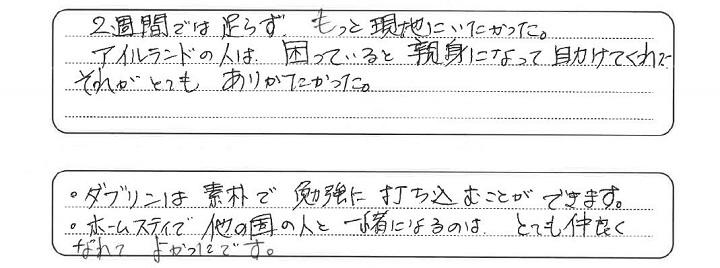 2週間では足らず、もっと現地にいたかった。
アイルランドの人は、困っていると親身になって助けてくれた
それがとても ありがたかった。
・ダブリンは素朴で勉強に打ち込むことができます。
・ホームステイで他の国の人と一緒になるのは、とても仲良く
なれて よかったです。